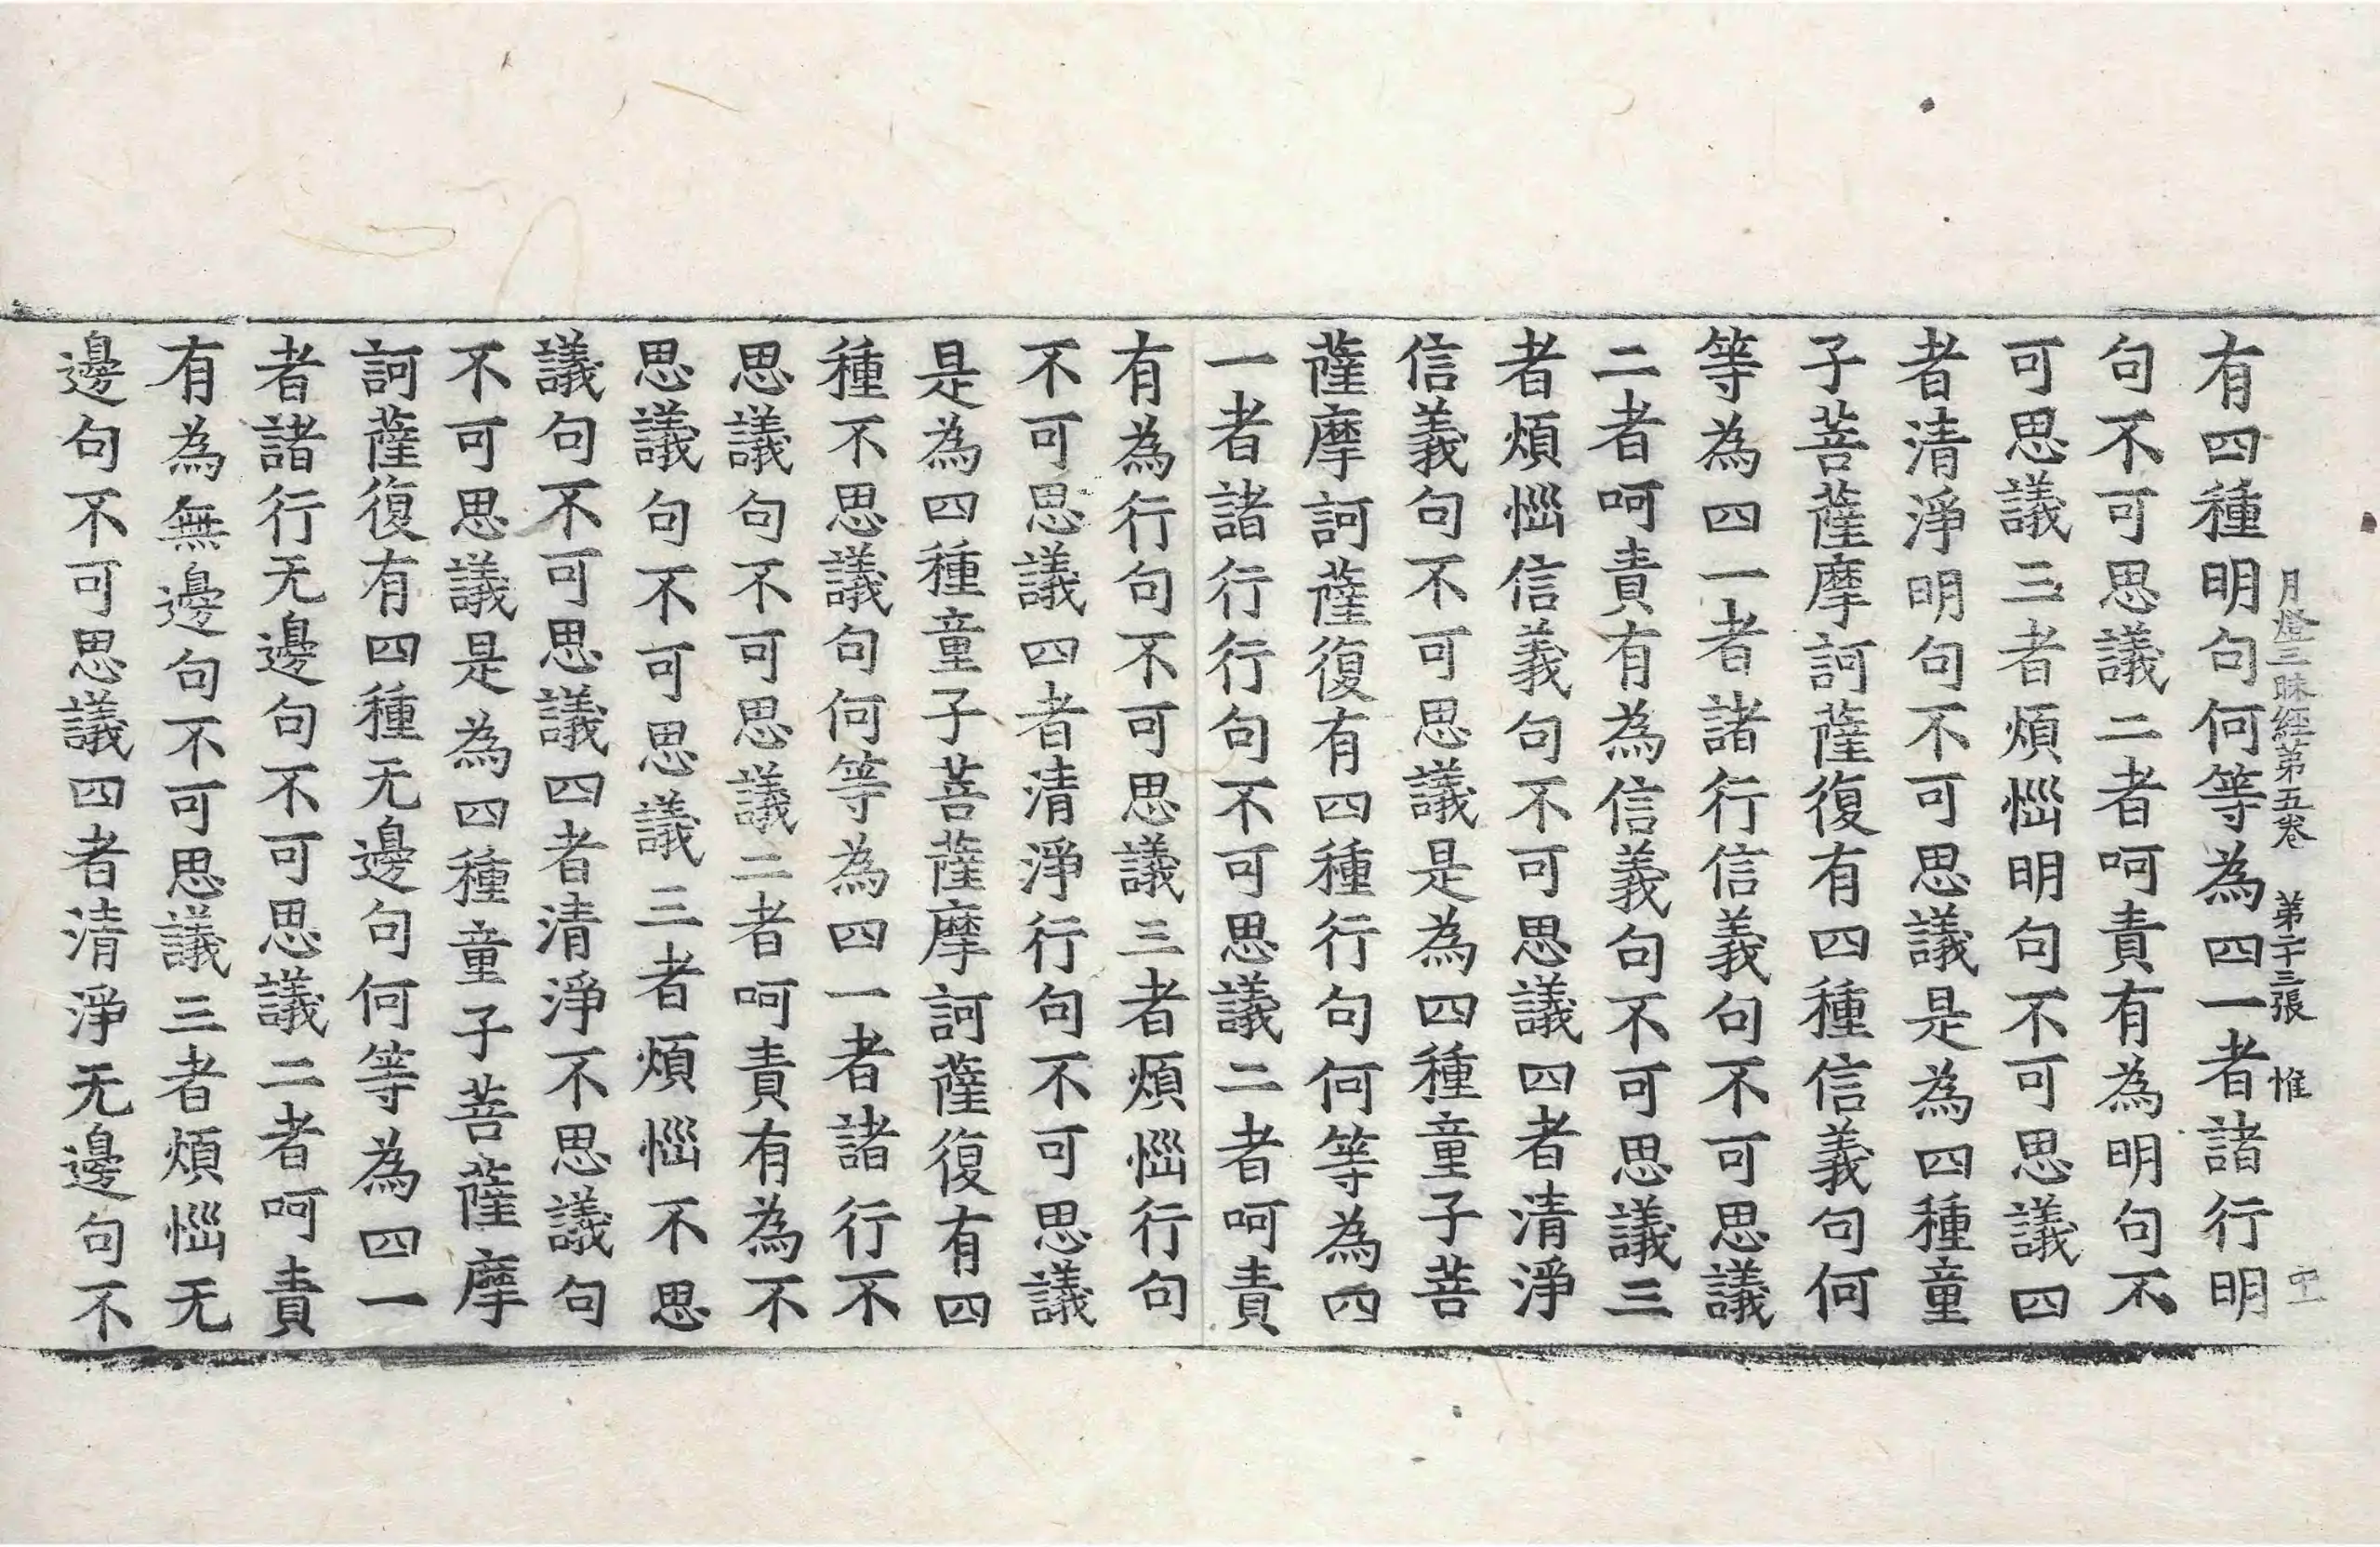 月燈三昧經第五卷　第二十三張　惟
有四種明句何等為四一者諸行明
句不可思議二者呵責有為明句不
可思議三者煩惱明句不可思議四
者清淨明句不可思議是為四種童
子菩薩摩訶薩復有四種信義句何
等為四一者諸行信義句不可思議
二者呵責有為信義句不可思議三
者煩惱信義句不可思議四者清淨
信義句不可思議是為四種童子菩
薩摩訶薩復有四種行句何等為四
一者諸行行句不可思議二者呵責
有為行句不可思議三者煩惱行句
不可思議四者清淨行句不可思議
是為四種童子菩薩摩訶薩復有四
種不思議句何等為四一者諸行不
思議句不可思議二者呵責有為不
思議句不可思議三者煩惱不思
議句不可思議四者清淨不思議句
不可思議是為四種童子菩薩摩
訶薩復有四種无邊句何等為四一
者諸行无邊句不可思議二者呵責
有為無邊句不可思議三者煩惱无
邊句不可思議四者清淨无邊句不